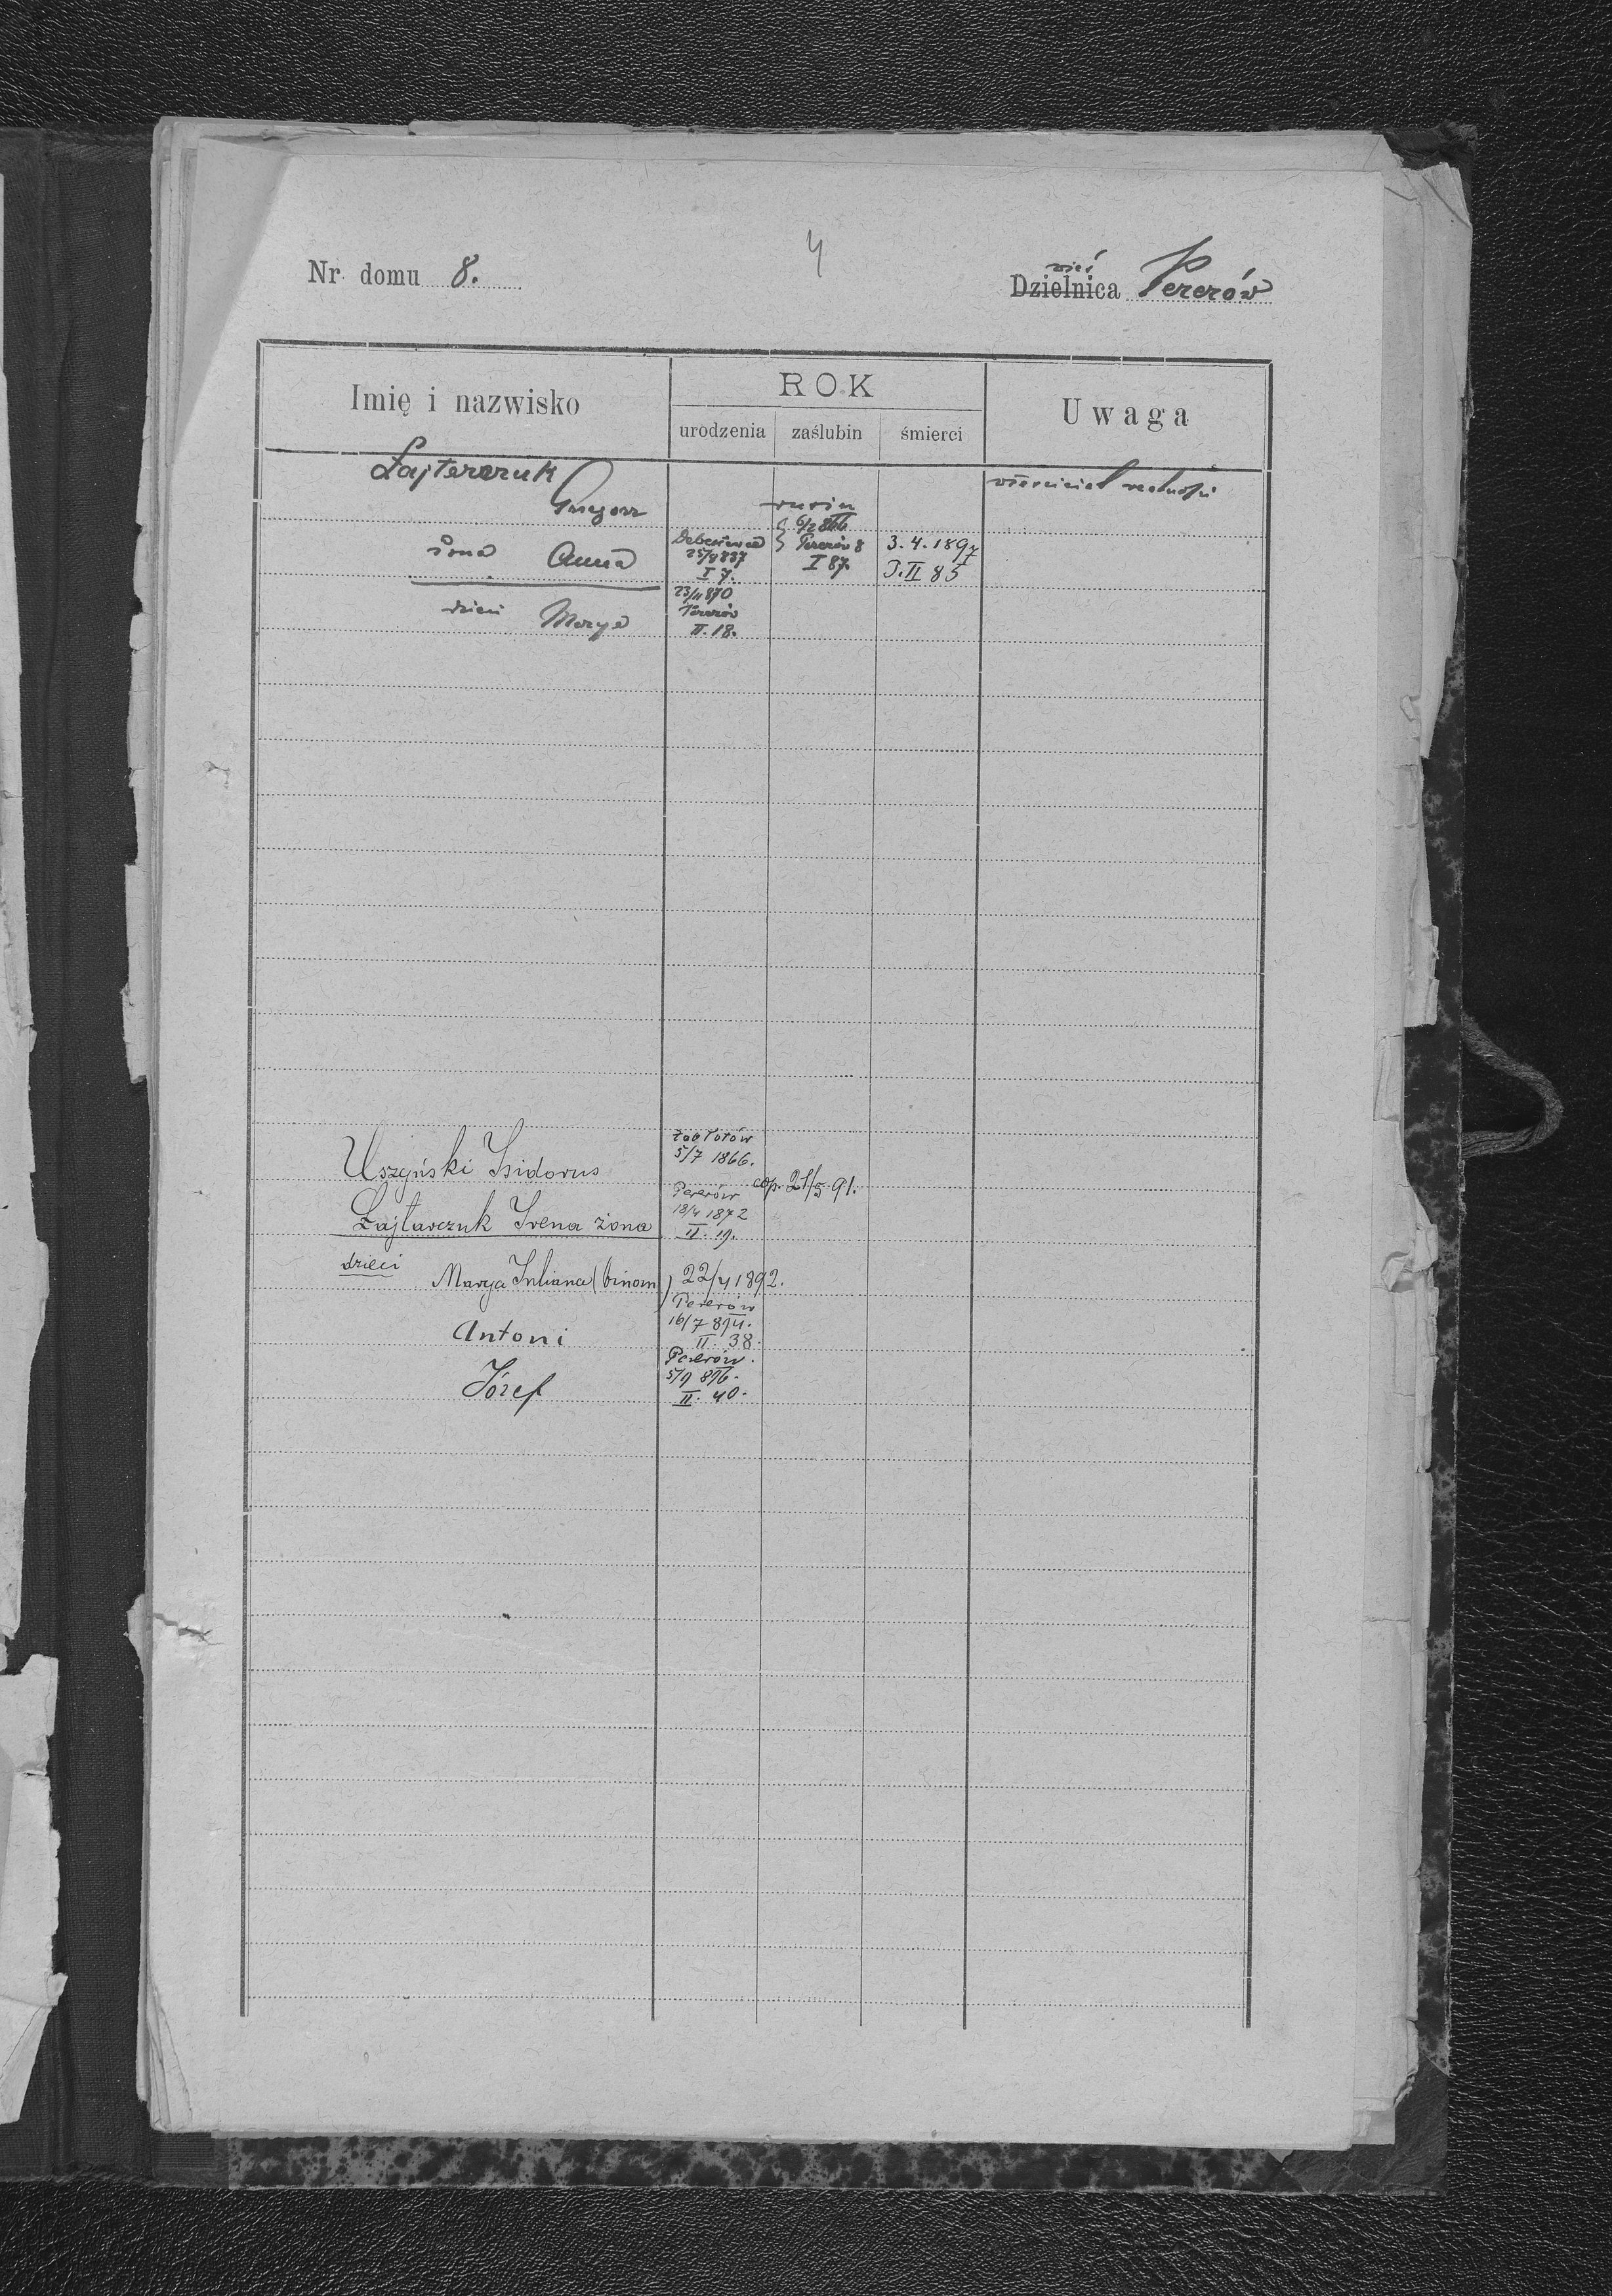 4
Nr. domu 8.
wieś
Dzielnica Pererów
Imię i nazwisko
ROK
urodzenia zaślubin śmierci
Uwaga
Łajterczuk
właściciel realności
Grzegorz
rusin
6/2 866
żona Anna
25/8 837
I 7.
Pererów 8
I 87.
3. 4. 1897
T. II 85
dzieci Marya
23/11 870
Pererów
II. 18.
Zabłotów
5/7 1866.
Uszyński Isidorus
cop. 21/5 91.
Pererów
18/4 1872
II. 19.
Łajtarczuk Irena żona
dzieci
Marya Juliana (binom) 22/4 1892.
Pererów
16/7 894.
II. 38.
Antoni
Pererów.
5/9 896.
II. 40.
Józef